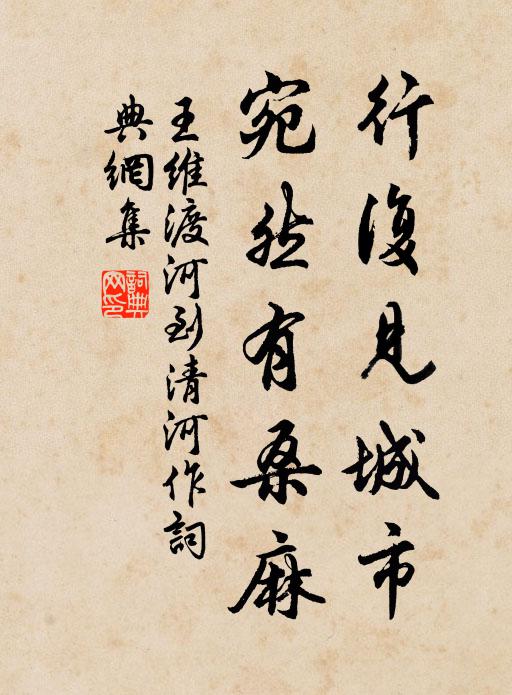 行復見城市
宛然有桑麻
王維渡河到清河作詞
典網集
詞典網印